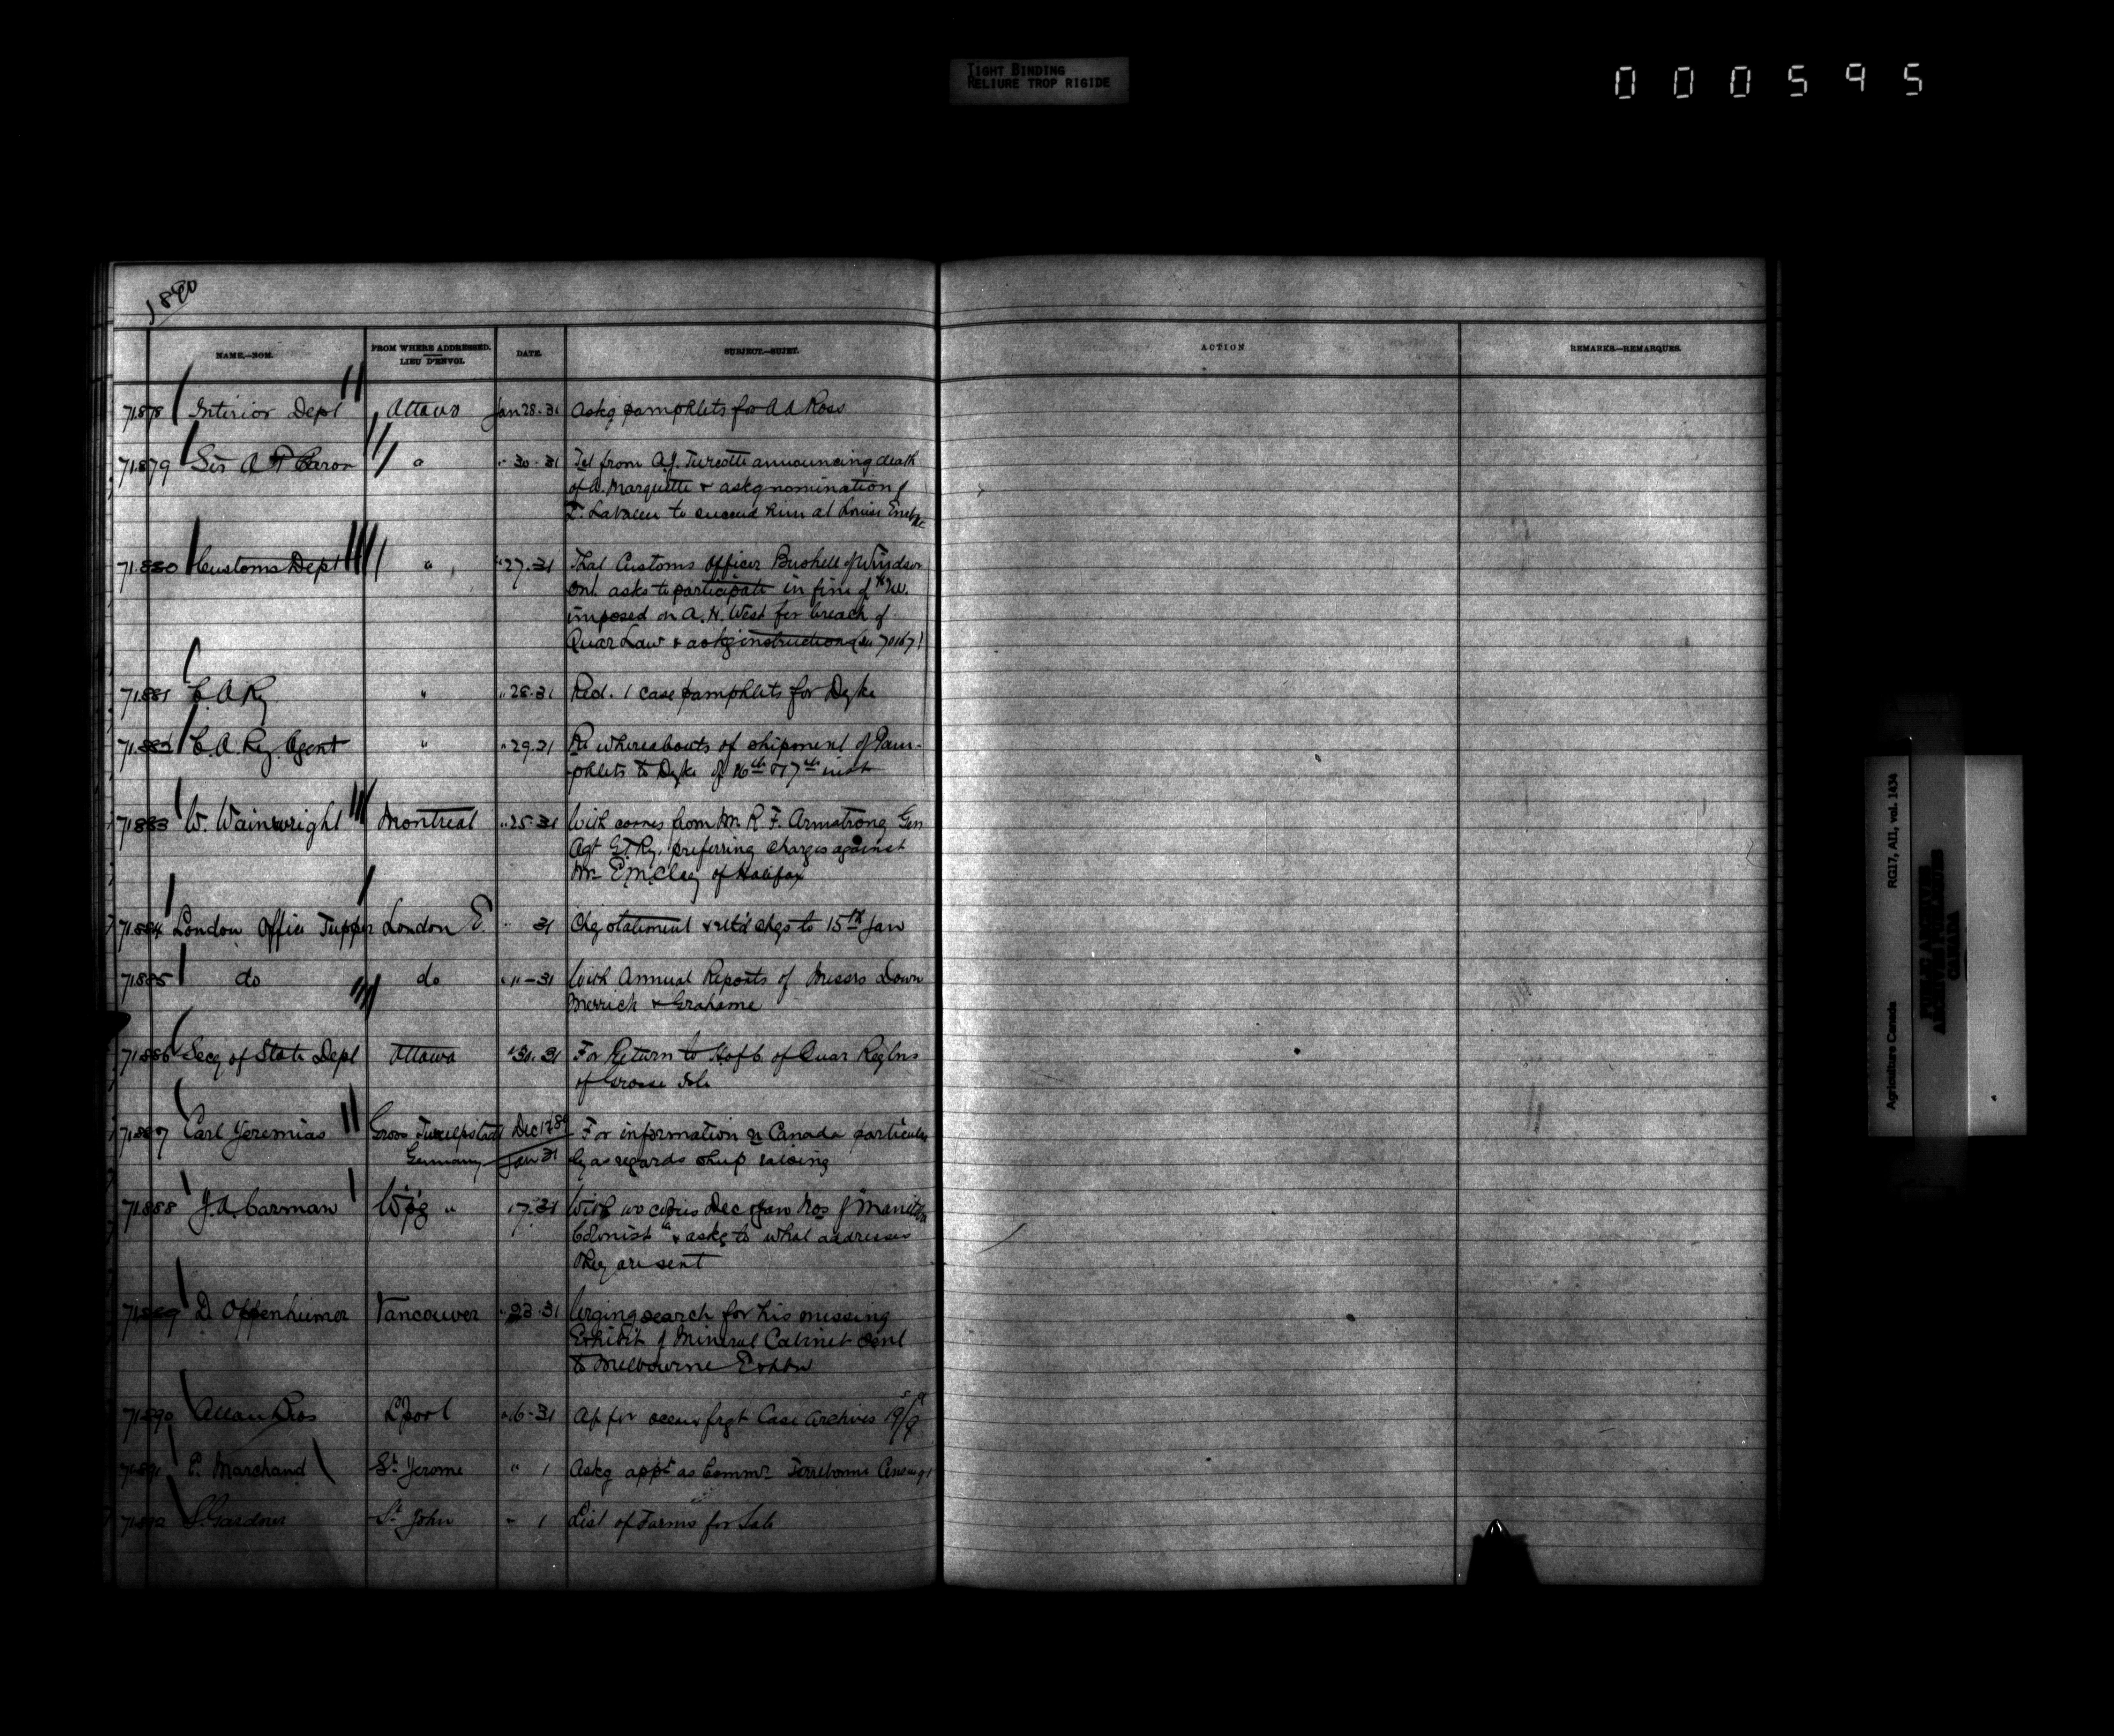 TIGHT BINDING
RELIURE TROP RIGIDE
000595
1890
NAME.—NOM.
FROM WHERE ADDRESSED.
LIEU D'ENVOI.
DATE.
SUBJECT.—SUJET.
ACTION
REMARKS.—REMARQUES.
71878 Interior Dept Ottawa Jan 28.31 Askg pamphlets for A A Ross
71879 Sir A P Caron " " 30.31 Tel from A.J. Turcotte announcing death
of D. Marquette & askg nomination of
to succeed him at Louise
71.880 Customs Dept " " 27.31 That Customs Officer Bushell of Windsor
Ont. asks to participate in fine of
imposed on A.H. West for breach of
Quar Law & askg instructions (su 70167)
71881 C. A Ry " " 28.31 Red. 1 case pamphlets for Dyke
71.882 C. A. Ry. Agent " " 29.31 Re whereabouts of shipment of Pam-
phlets to Dyke of 16th & 17th inst
71883 W. Wainwright Montreal " 25.31 With comes from Mr R. F. Armstrong Gen
Agt G.T.Ry. preferring charges against
Mr E McClay of Halifax
71.884 London Office Tupper London E. " 31 Chg statement & chgs to 15th Jan
71885 do do " 11-31 With Annual Reports of Messrs Down
Merrick & Grahame
71.886 Secy of State Dept Ottawa " 30.31 For Return to H of C. of Quar Reglns
of Grosse Isle
71.887 Carl Jeremias Gross Dec 17 89 For information re Canada particular
Germany Jan 31 ly as regards sheep raising
71.888 J.A. Carman Wpg " 17.31 With two copies Dec & Jan Nos of "Manitoba
Colonist" & asks to what addresses
they are sent
71889 D Oppenheimer Vancouver " 23.31 Urging search for his missing
Exhibit of Mineral Cabinet sent
to Melbourne Exhbn
71890 Allan Bros L'pool " 16-31 frgt Case Archives
71891 P. Marchand St Jerome " 1 Askg appt as Commr Terrebonne Census 91
71892 S. Gardner St John " 1 List of Farms for Sale
Agriculture Canada RG17, AI1, vol. 1434
PUBLIC ARCHIVES
ARCHIVES PUBLIQUES
CANADA